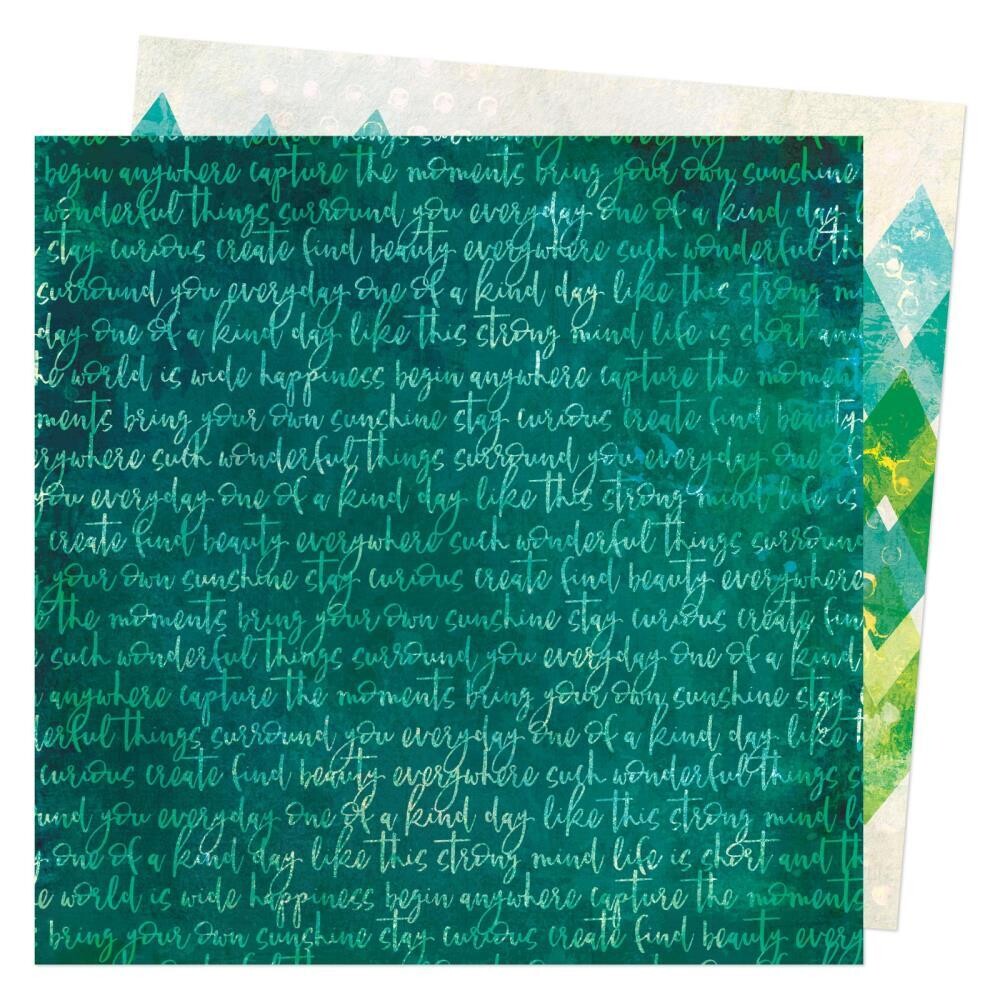 begin anywhere capture the moments bring your own sunshine
wonderful things surround you everyday one of a kind day
stay curious create find beauty everywhere such wonderful th
surround you everyday one of a kind day like this strong m
day one of a kind day like this strong mind life is short an
he world is wide happiness begin anywhere capture the momen
ments bring your own sunshine stay curious create find beauty
erywhere such wonderful things surround you everyday one of
you everyday one of a kind day like this strong mind life is
create find beauty everywhere such wonderful things surroun
your own sunshine stay curious create find beauty everywhere
the moments bring your own sunshine stay curious create fin
such wonderful things surround you everyday one of a kind
anywhere capture the moments bring your own sunshine stay
derful things surround you everyday one of a kind day like
curious create find beauty everywhere such wonderful things s
und you everyday one of a kind day like this strong mind l
one of a kind day like this strong mind life is short and th
e world is wide happiness begin anywhere capture the moments
bring your own sunshine stay curious create find beauty every